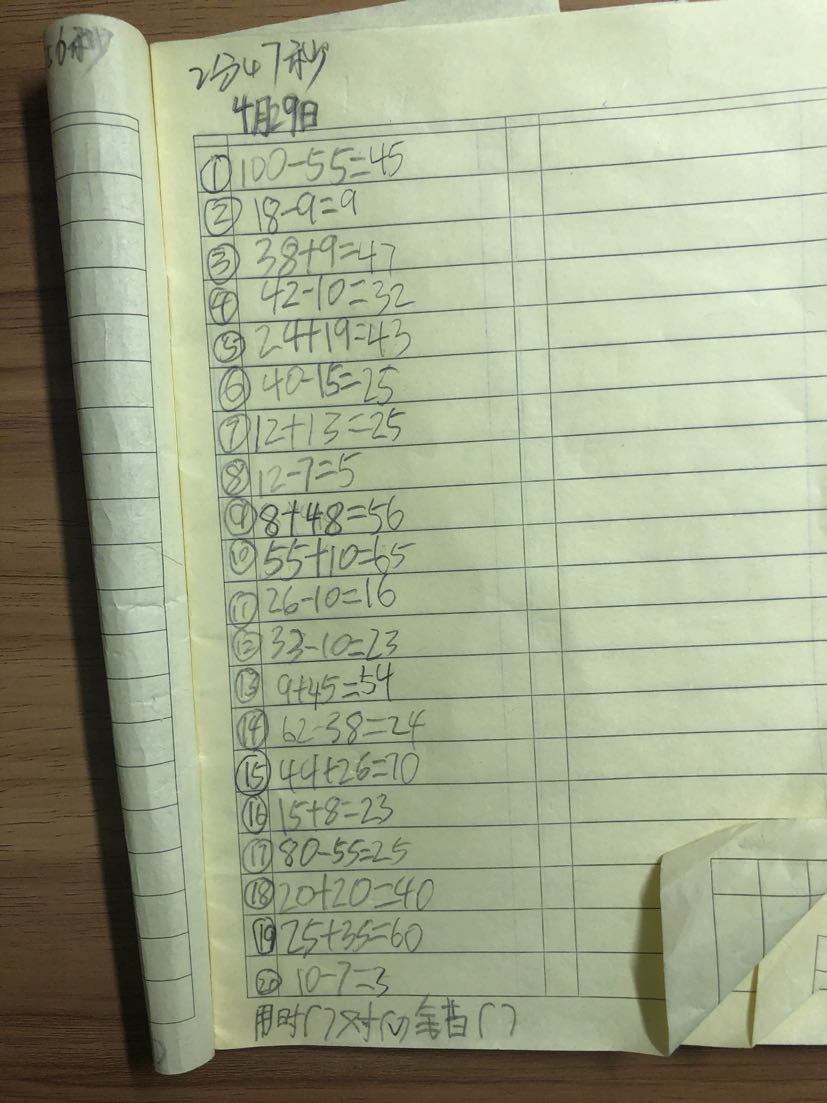 6秒
2分47秒
4月29日
① 100-55=45
② 18-9=9
③ 38+9=47
④ 42-10=32
⑤ 24+19=43
⑥ 40-15=25
⑦ 12+13=25
⑧ 12-7=5
⑨ 8+48=56
⑩ 55+10=65
⑪ 26-10=16
⑫ 33-10=23
⑬ 9+45=54
⑭ 62-38=24
⑮ 44+26=70
⑯ 15+8=23
⑰ 80-55=25
⑱ 20+20=40
⑲ 25+35=60
⑳ 10-7=3
用时( )对( )错( )